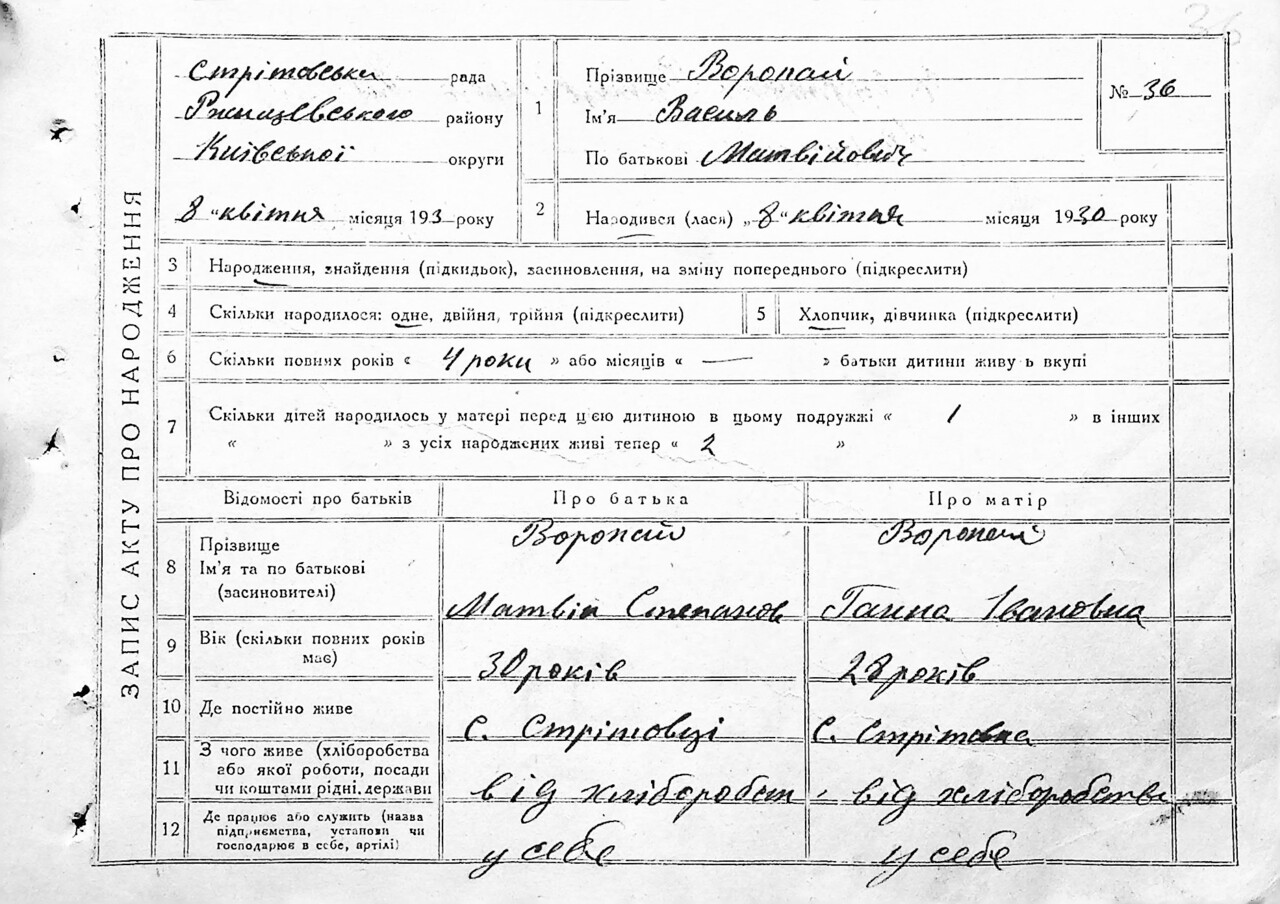 36
ЗАПИС АКТУ ПРО НАРОДЖЕННЯ
Стрітовська рада
Ржищевського району
Київської округи
8 "квітня місяця 193 року
1 Прізвище Воропай
Ім'я Василь
По батькові Матвійович
№ 36
2 Народився (лася) „8" квітня місяця 1930 року
3 Народження, знайдення (підкидьок), засиновлення, на зміну попереднього (підкреслити)
4 Скільки народилося: одне, двійня, трійня (підкреслити) 5 Хлопчик, дівчинка (підкреслити)
6 Скільки повних років « 4 роки » або місяців « — » батьки дитини живуть вкупі
7 Скільки дітей народилось у матері перед цією дитиною в цьому подружжі « 1 » в інших
« » з усіх народжених живі тепер « 2 »
Відомості про батьків Про батька Про матір
8 Прізвище Воропай Воропай
Ім'я та по батькові
(засиновителі) Матвій Степанов Ганна Івановна
9 Вік (скільки повних років
має) 30 років 28 років
10 Де постійно живе с. Стрітовці с. Стрітовка
11 З чого живе (хліборобства
або якої роботи, посади
чи коштами рідні, держави від хліборобст від хліборобства
12 Де працює або служить (назва
підприємства, установи чи
господарює в себе, артілі) у себе у себе